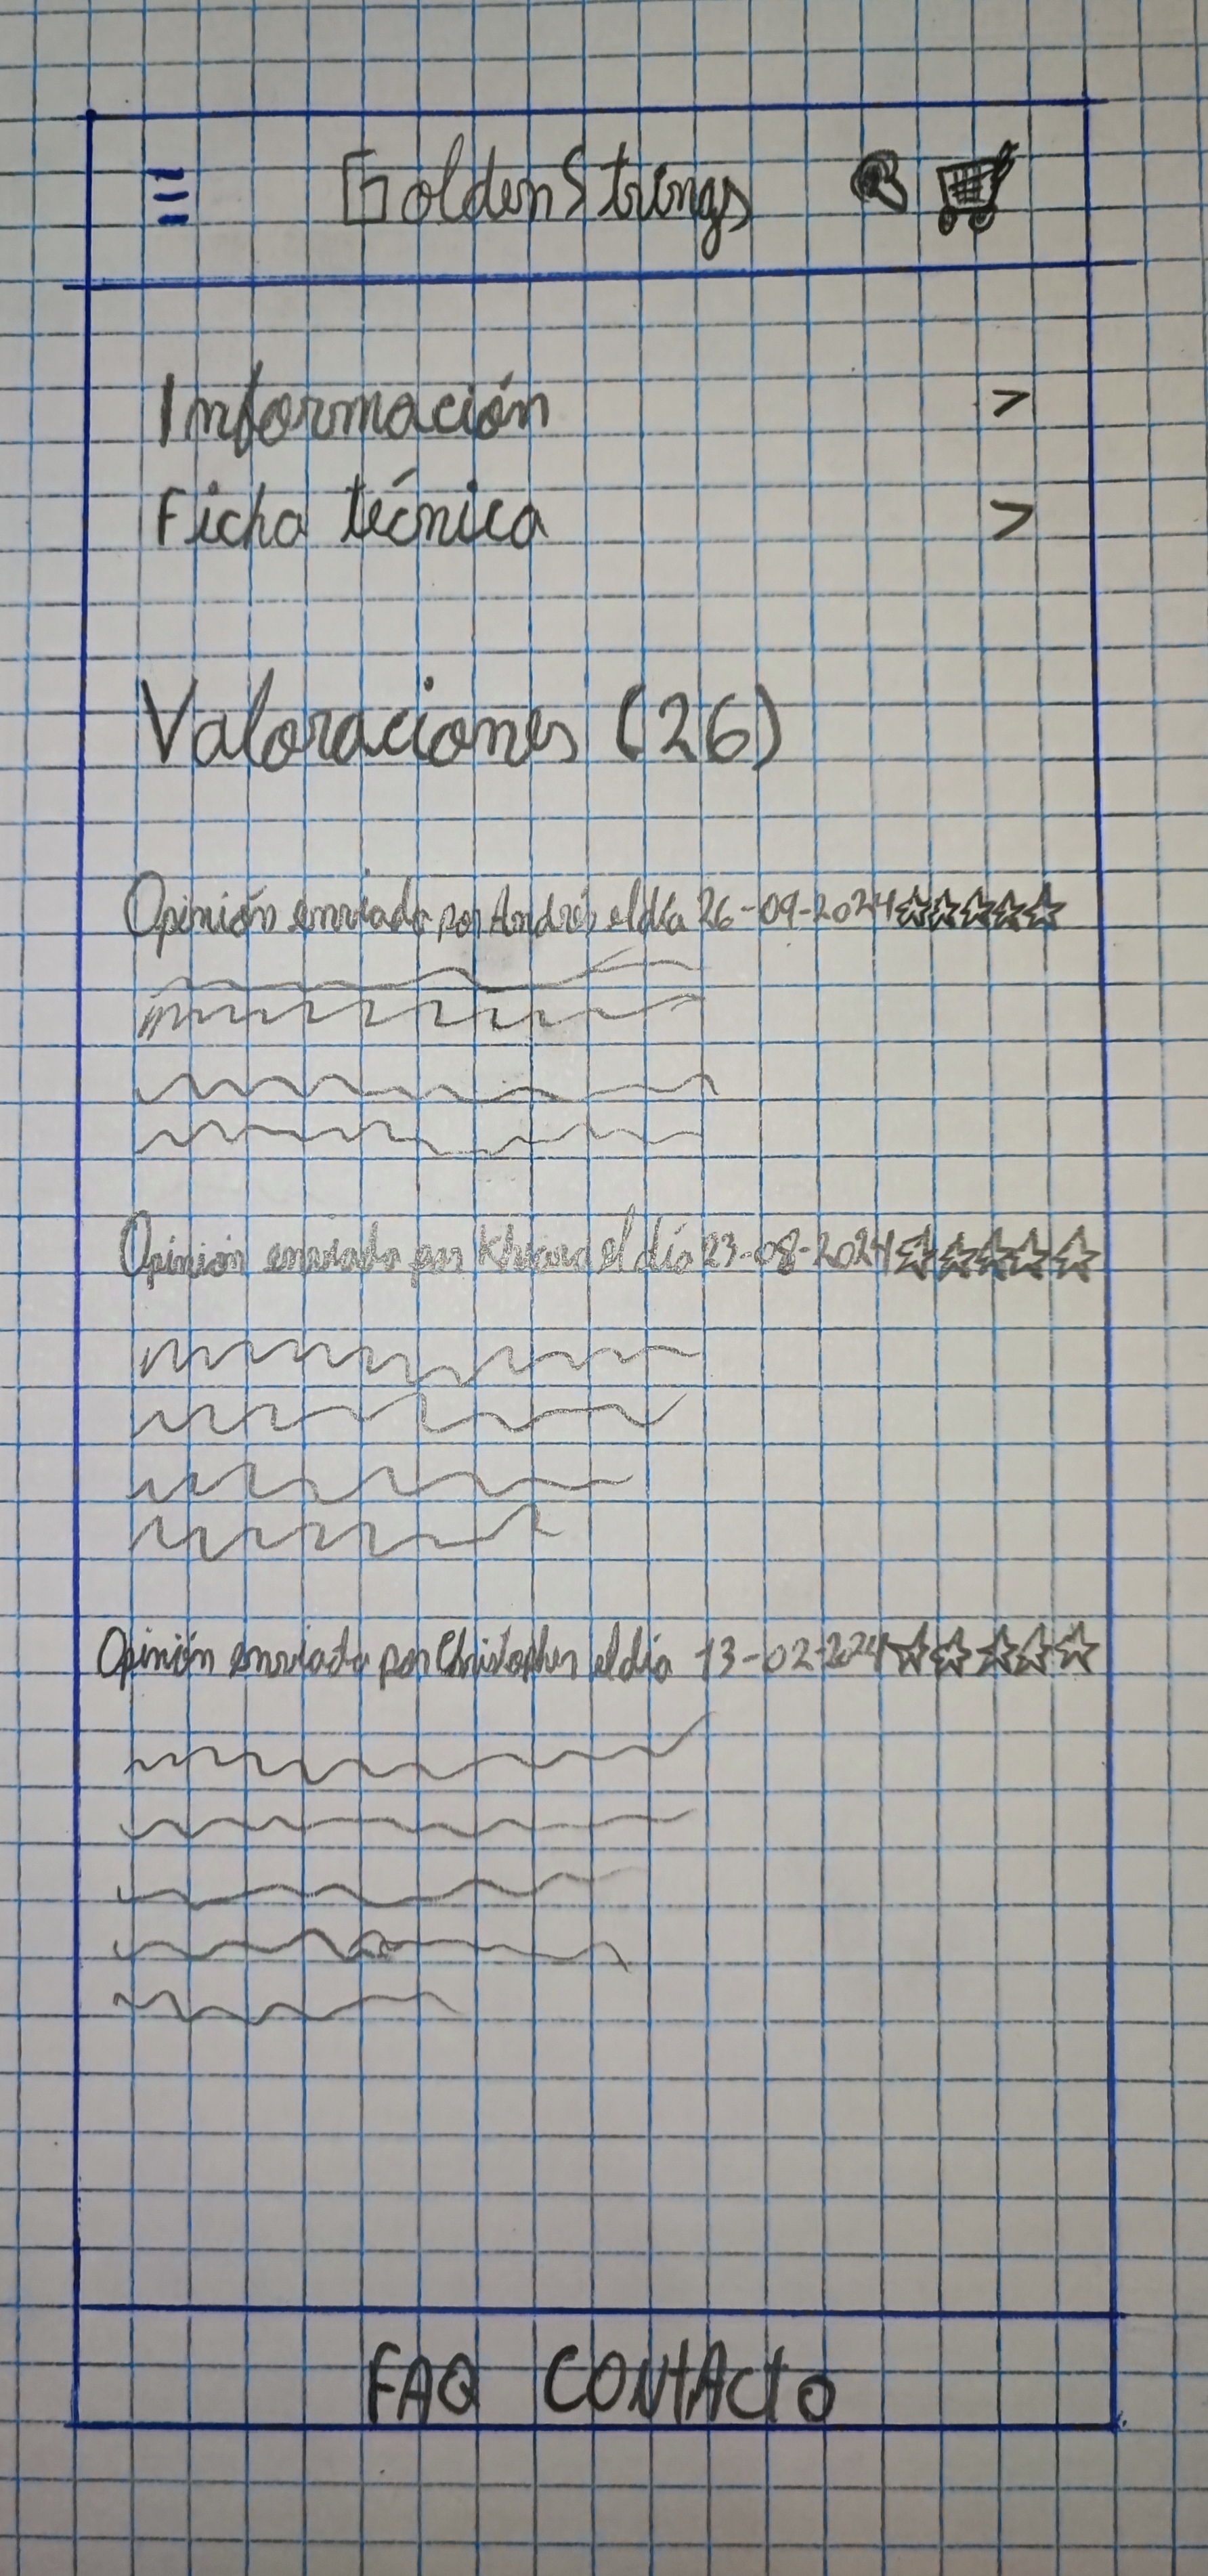 GoldenStrings
Información >
Ficha técnica >
Valoraciones (26)
Opinión enviada por Andrés el día 26-09-2024
Opinión enviada por el día 23-08-2024
Opinión enviada por Christopher el día 13-02-2024
FAQ CONtActo